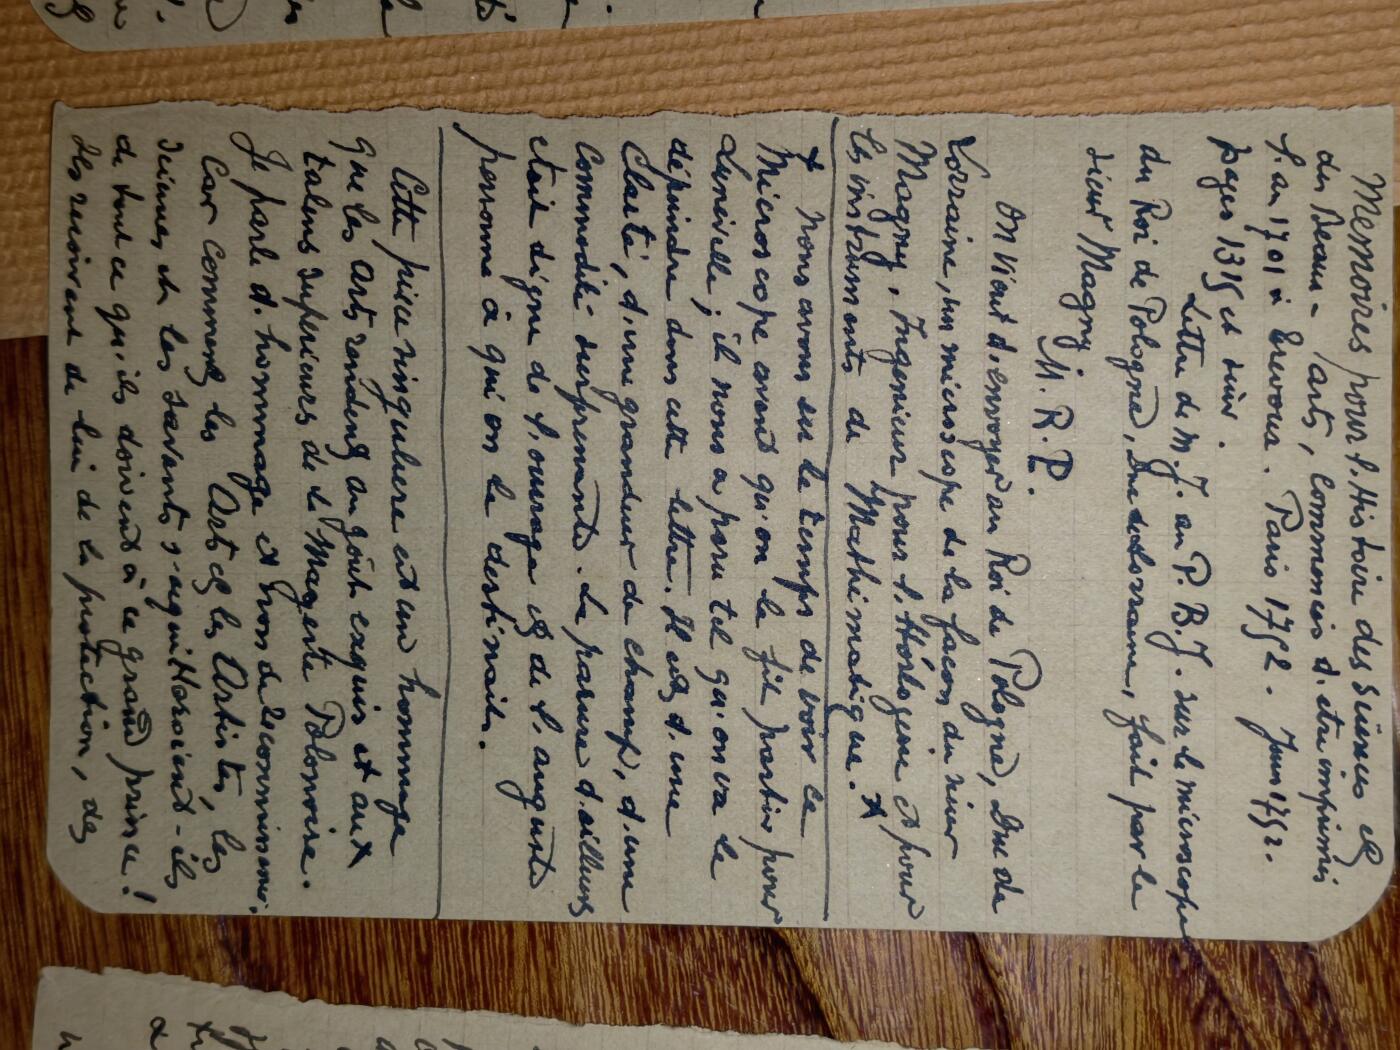 Memoires pour l'Histoire des Sciences et
des Beaux-arts, Commencés d'etre imprimés
l'an 1701 à Trevoux. Paris 1752. Juin 1752.
pages 1315 et suiv.
Lettre de M. J. au P. B. J. sur le microscope
du Roi de Pologne, Duc de Lorraine, fait par le
sieur Magny
M. R. P.
On vient d'envoyer au Roi de Pologne, Duc de
Lorraine, un microscope de la façon du sieur
Magny, Ingenieur pour l'Horlogerie et pour
les instruments de Mathématique. x
x nous avons eu le temps de voir ce
Microscope avant qu'on le fit partir pour
Luneville; il nous a paru tel qu'on va le
dépeindre dans cette lettre. Il est d'une
Clarté, d'une grandeur de champ, d'une
Commodité surprenante. La parure d'ailleurs
etait digne de l'ouvrage et de l'auguste
personne à qui on le destinait.
Cette pièce singuliere est un hommage
que les arts rendent au goût exquis et aux x
talens superieurs de sa Majesté Polonoise.
Je parle d'hommage et non de reconnissance.
Car comment les Arts et les Artistes, les
sciences et les savants s'aquitteroient-ils
de tout ce qu'ils doivent à ce grand prince!
Ils recoivent de lui de la protection, des